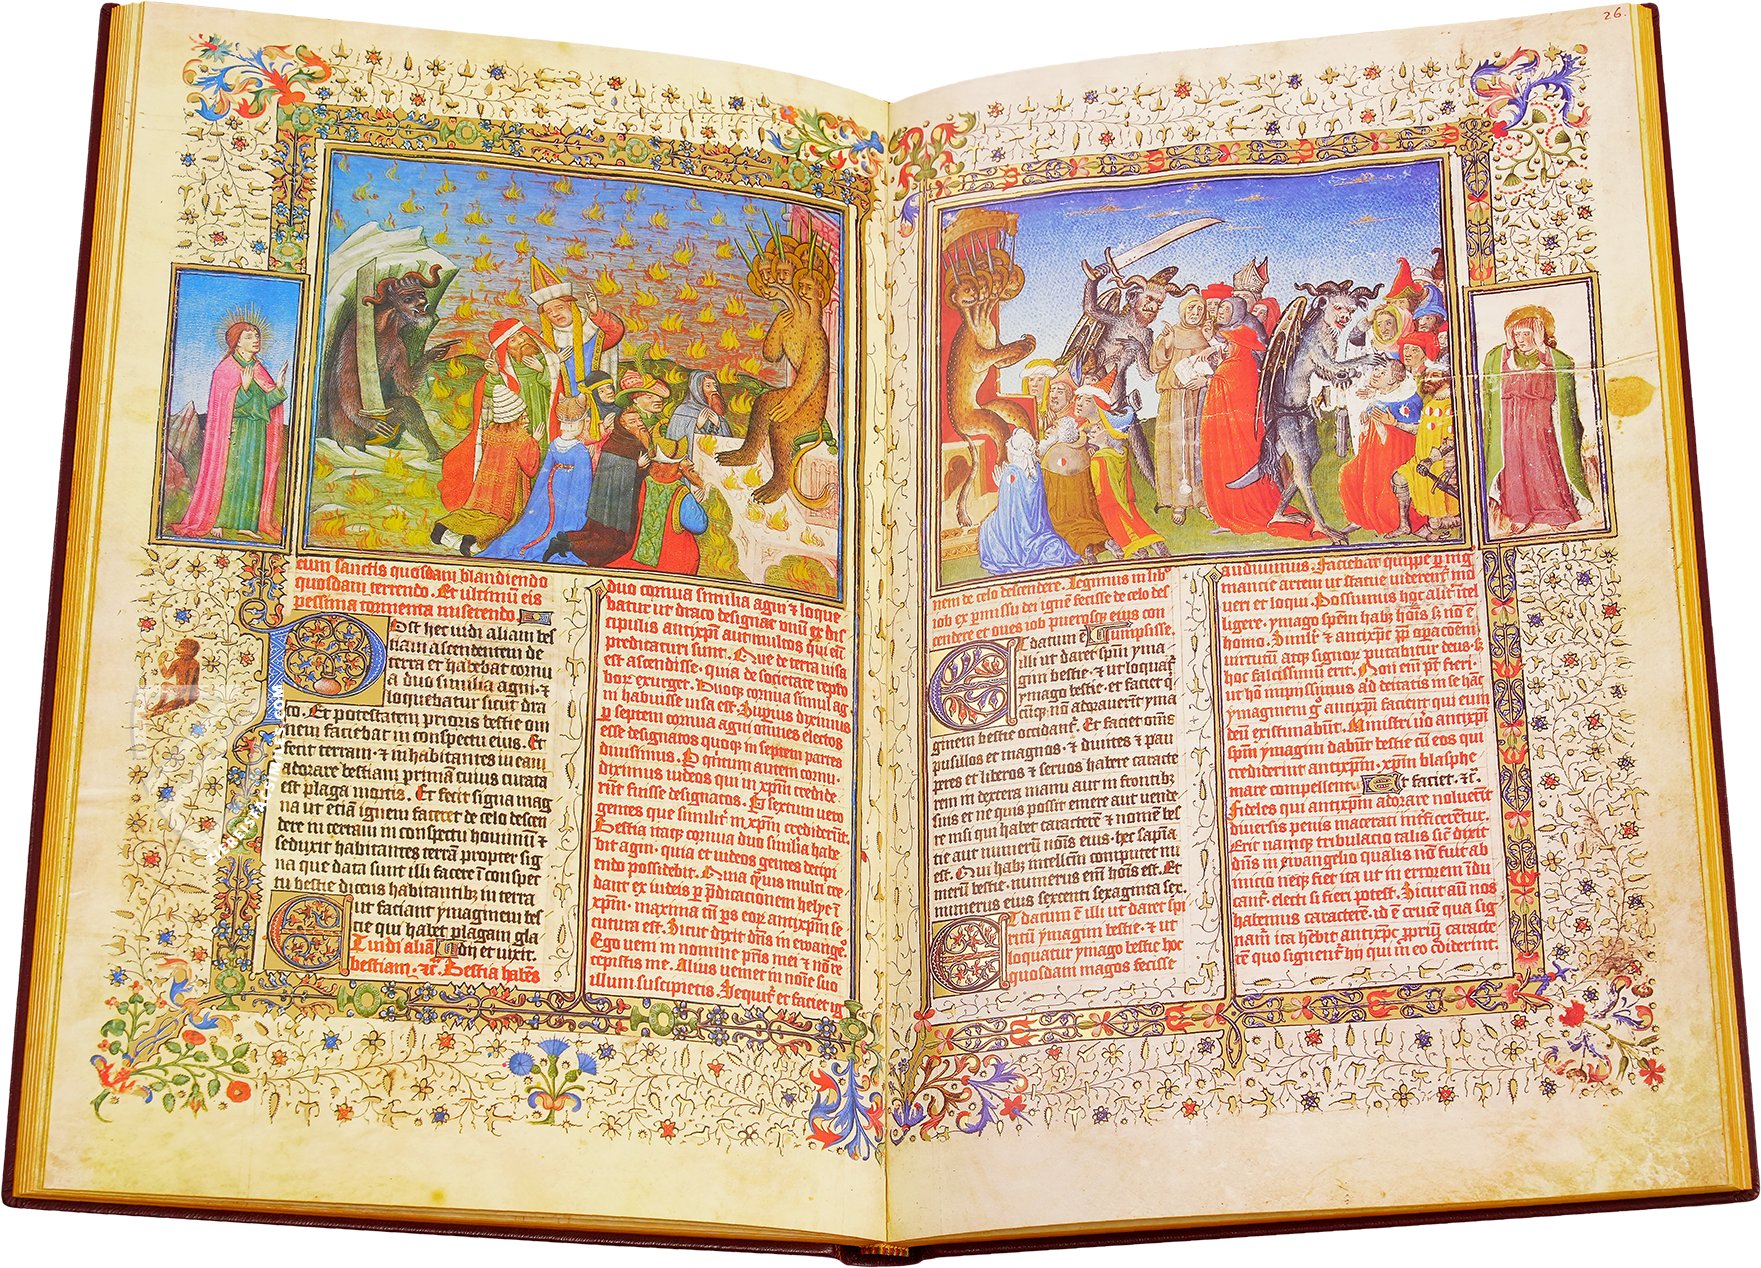 26.
eum sanctis quosdam blandiendo
quosdam terrendo. Et ultimum eis
pessima tormenta miserendo.
Post hec uidi aliam bes
tiam ascendentem de
terra et habebat cornu
a duo similia agni. et
loquebatur sicut dra
co. Et potestatem prioris bestie om
nem faciebat in conspectu eius. Et
fecit terram. et inhabitantes in eam
adorare bestiam primam cuius curata
est plaga mortis. Et fecit signa mag
na ut etiam ignem faceret de celo descen
dere in terram in conspectu hominum et
seduxit habitantes terram propter sig
na que data sunt illi facere in conspec
tu bestie dicens habitantibus in terra
Et ut faciant ymaginem bes
tie que habet plagam gla
dii et uixit.
Et uidi aliam
bestiam. etc. Bestia habens
duo cornua similia agni et loque
batur ut draco designat
predicaturi sunt. Que de terra uisa
est ascendisse. quia de societate
esse designatos quoque in septem partes
diuisimus. Per quintum autem cornu
diximus iudeos qui in xpm credide
runt fuisse designatos. Per sextum uero
gentes que similiter in xpm crediderunt.
Bestia itaque cornua duo similia habe
bit agni. quia et iudeos gentes decipi
endo possidebit. Quia quamuis multi cre
dant ex iudeis per predicationem helye in
xpm. maxima tamen pars eorum antixpm se
cutura est. Sicut dixit dns in ewangelio.
Ego ueni in nomine patris mei et non re
cepistis me. Alius ueniet in nomine suo
illum suscipietis. Sequitur et faciet ig
nem de celo descendere. Legimus in libro
iob ex permissu dei ignem fecisse de celo des
cendere et oues iob puerosque eius con
sumpsisse.
Et datum est
illi ut daret spiritum yma
gini bestie. et ut loquatur
ymago bestie. et faciet ut
quicumque non adorauerit yma
ginem bestie occidatur. Et faciet omnes
pusillos et magnos. et diuites et pau
peres et liberos et seruos habere caracte
rem in dextera manu aut in frontibus
suis et ne quis possit emere aut uende
re nisi qui habet caracterem et nomen bes
tie aut numerum nominis eius. hec sapientia
est. Qui habet intellectum computet nu
merum bestie. numerus enim hominis est. Et
numerus eius sexcenti sexaginta sex.
Et datum est illi ut daret spi
ritum ymagini bestie. et ut
loquatur ymago bestie hoc
quosdam magos fecisse
audiuimus. Faciebat quippe per nig
mantie artem ut statue uiderentur mo
ueri et loqui. Possumus hoc aliter intel
ligere.
homo. Similiter et antixpc per operacionem
uirtutum atque signorum putabitur deus.
hoc falcissimum erit. Non enim potest fieri.
ut homo impiissimus ad deitatis in se habeat
ymaginem. antixpm facient qui eum
deum existimabunt. Ministri uero antixpi
spiritum ymagini dabunt bestie cum eos qui
crediderint antixpm. xpm blasphe
mare compellent. Et faciet. etc.
Fideles qui antixpm adorare noluerint
diuersis penis macerati interficerentur.
Erit namque tribulacio talis sicut dixit
dns in ewangelio qualis non fuit ab
inicio neque fiet ita ut in errorem indu
cantur. electi si fieri potest. Sicut autem nos
habemus caracterem. id est crucem qua sig
namur ita habebit antixpc proprium caracte
rem quo signentur hii qui in eo crediderint.